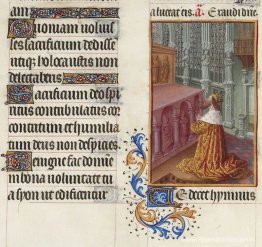 am
Quoniam voluiſ
ses sacrificium dedisse
utique holocaustis non
delectaberis
Sacrificium deo spi
ritus contribulatus cor
contritum et humilia
tum deus non despicies
Benigne fac domine
in bona voluntate tua
syon ut edificentur
a luctatus. a. Exaudi due
Te decet hymnus